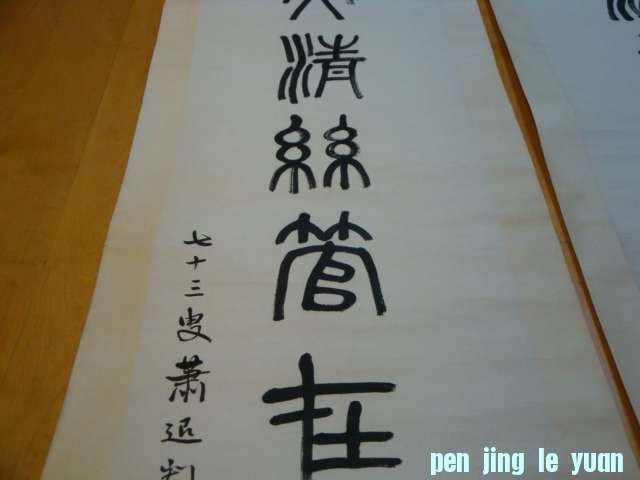 清絲管在
七十三叟蕭退
pen jing le yuan